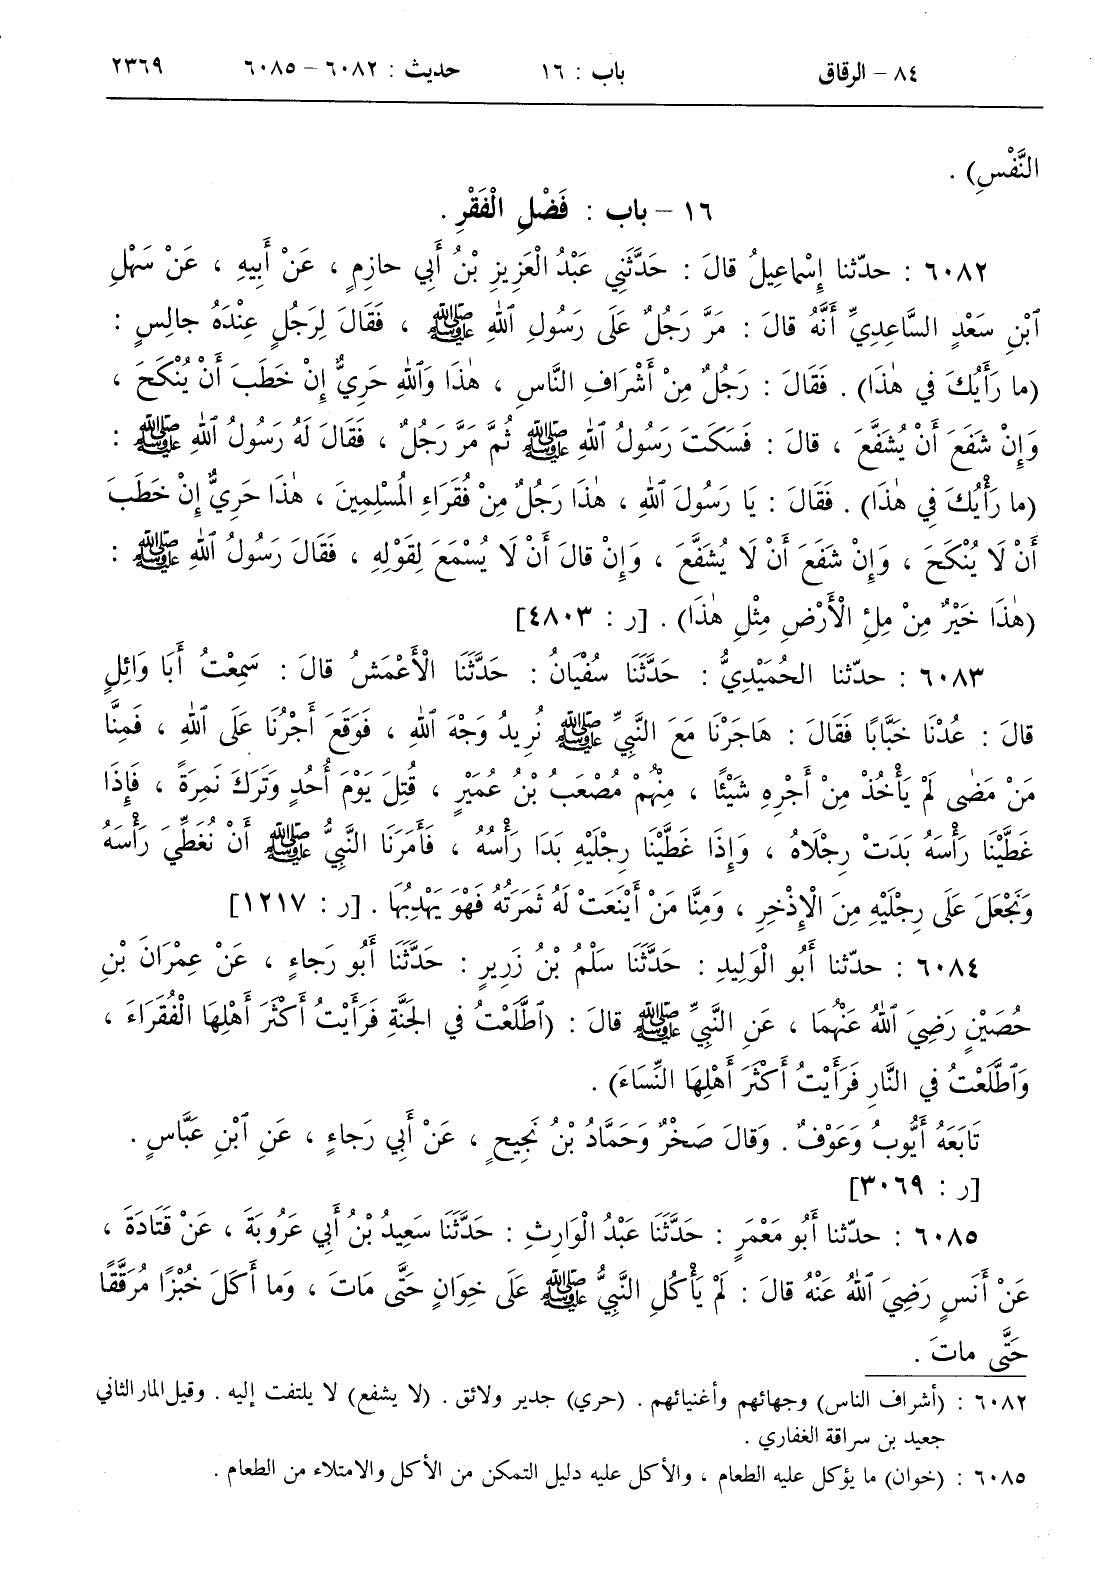 ٨٤ - الرقاق باب : ١٦ حديث : ٦٠٨٢ - ٦٠٨٥ ٢٣٦٩
النَّفْسِ) .
١٦ - باب : فَضْلِ الْفَقْرِ .
٦٠٨٢ : حدّثنا إِسْماعِيلُ قالَ : حَدَّثَنِي عَبْدُ الْعَزِيزِ بْنُ أَبِي حازِمٍ ، عَنْ أَبِيهِ ، عَنْ سَهْلِ
ٱبْنِ سَعْدٍ السَّاعِدِيِّ أَنَّهُ قالَ : مَرَّ رَجُلٌ عَلَى رَسُولِ ٱللهِ ﷺ ، فَقَالَ لِرَجُلٍ عِنْدَهُ جالِسٍ :
(ما رَأَيُكَ فِي هٰذَا) . فَقَالَ : رَجُلٌ مِنْ أَشْرَافِ النَّاسِ ، هٰذَا وَٱللهِ حَرِيٌّ إِنْ خَطَبَ أَنْ يُنْكَحَ ،
وَإِنْ شَفَعَ أَنْ يُشَفَّعَ ، قالَ : فَسَكَتَ رَسُولُ ٱللهِ ﷺ ثُمَّ مَرَّ رَجُلٌ ، فَقَالَ لَهُ رَسُولُ ٱللهِ ﷺ :
(ما رَأْيُكَ فِي هٰذَا) . فَقَالَ : يَا رَسُولَ ٱللهِ ، هٰذَا رَجُلٌ مِنْ فُقَرَاءِ الْمُسْلِمِينَ ، هٰذَا حَرِيٌّ إِنْ خَطَبَ
أَنْ لَا يُنْكَحَ ، وَإِنْ شَفَعَ أَنْ لَا يُشَفَّعَ ، وَإِنْ قالَ أَنْ لَا يُسْمَعَ لِقَوْلِهِ ، فَقَالَ رَسُولُ ٱللهِ ﷺ :
(هٰذَا خَيْرٌ مِنْ مِلْءِ الْأَرْضِ مِثْلِ هٰذَا) . [ر : ٤٨٠٣]
٦٠٨٣ : حدّثنا الحُمَيْدِيُّ : حَدَّثَنَا سُفْيَانُ : حَدَّثَنَا الْأَعْمَشُ قالَ : سَمِعْتُ أَبَا وَائِلٍ
قالَ : عُدْنَا خَبَّابًا فَقَالَ : هَاجَرْنَا مَعَ النَّبِيِّ ﷺ نُرِيدُ وَجْهَ ٱللهِ ، فَوَقَعَ أَجْرُنَا عَلَى ٱللهِ ، فَمِنَّا
مَنْ مَضٰى لَمْ يَأْخُذْ مِنْ أَجْرِهِ شَيْئًا ، مِنْهُمْ مُصْعَبُ بْنُ عُمَيْرٍ ، قُتِلَ يَوْمَ أُحُدٍ وَتَرَكَ نَمِرَةً ، فَإِذَا
غَطَّيْنَا رَأْسَهُ بَدَتْ رِجْلَاهُ ، وَإِذَا غَطَّيْنَا رِجْلَيْهِ بَدَا رَأْسُهُ ، فَأَمَرَنَا النَّبِيُّ ﷺ أَنْ نُغَطِّيَ رَأْسَهُ
وَنَجْعَلَ عَلَى رِجْلَيْهِ مِنَ الْإِذْخِرِ ، وَمِنَّا مَنْ أَيْنَعَتْ لَهُ ثَمَرَتُهُ فَهْوَ يَهْدِبُهَا . [ر : ١٢١٧]
٦٠٨٤ : حدّثنا أَبُو الْوَلِيدِ : حَدَّثَنَا سَلْمُ بْنُ زَرِيرٍ : حَدَّثَنَا أَبُو رَجاءٍ ، عَنْ عِمْرَانَ بْنِ
حُصَيْنٍ رَضِيَ ٱللهُ عَنْهُمَا ، عَنِ النَّبِيِّ ﷺ قالَ : (ٱطَّلَعْتُ فِي الجَنَّةِ فَرَأَيْتُ أَكْثَرَ أَهْلِهَا الْفُقَرَاءَ ،
وَٱطَّلَعْتُ فِي النَّارِ فَرَأَيْتُ أَكْثَرَ أَهْلِهَا النِّسَاءَ) .
تَابَعَهُ أَيُّوبُ وَعَوْفٌ . وَقالَ صَخْرٌ وَحَمَّادُ بْنُ نَجِيحٍ ، عَنْ أَبِي رَجاءٍ ، عَنِ ٱبْنِ عَبَّاسٍ .
[ر : ٣٠٦٩]
٦٠٨٥ : حدّثنا أَبُو مَعْمَرٍ : حَدَّثَنَا عَبْدُ الْوَارِثِ : حَدَّثَنَا سَعِيدُ بْنُ أَبِي عَرُوبَةَ ، عَنْ قَتَادَةَ ،
عَنْ أَنَسٍ رَضِيَ ٱللهُ عَنْهُ قالَ : لَمْ يَأْكُلِ النَّبِيُّ ﷺ عَلَى خِوَانٍ حَتَّى ماتَ ، وَما أَكَلَ خُبْزًا مُرَقَّقًا
حَتَّى ماتَ .
٦٠٨٢ : (أشراف الناس) وجهائهم وأغنيائهم . (حري) جدير ولائق . (لا يشفع) لا يلتفت إليه . وقيل المار الثاني
جعيد بن سراقة الغفاري .
٦٠٨٥ : (خوان) ما يؤكل عليه الطعام ، والأكل عليه دليل التمكن من الأكل والامتلاء من الطعام .